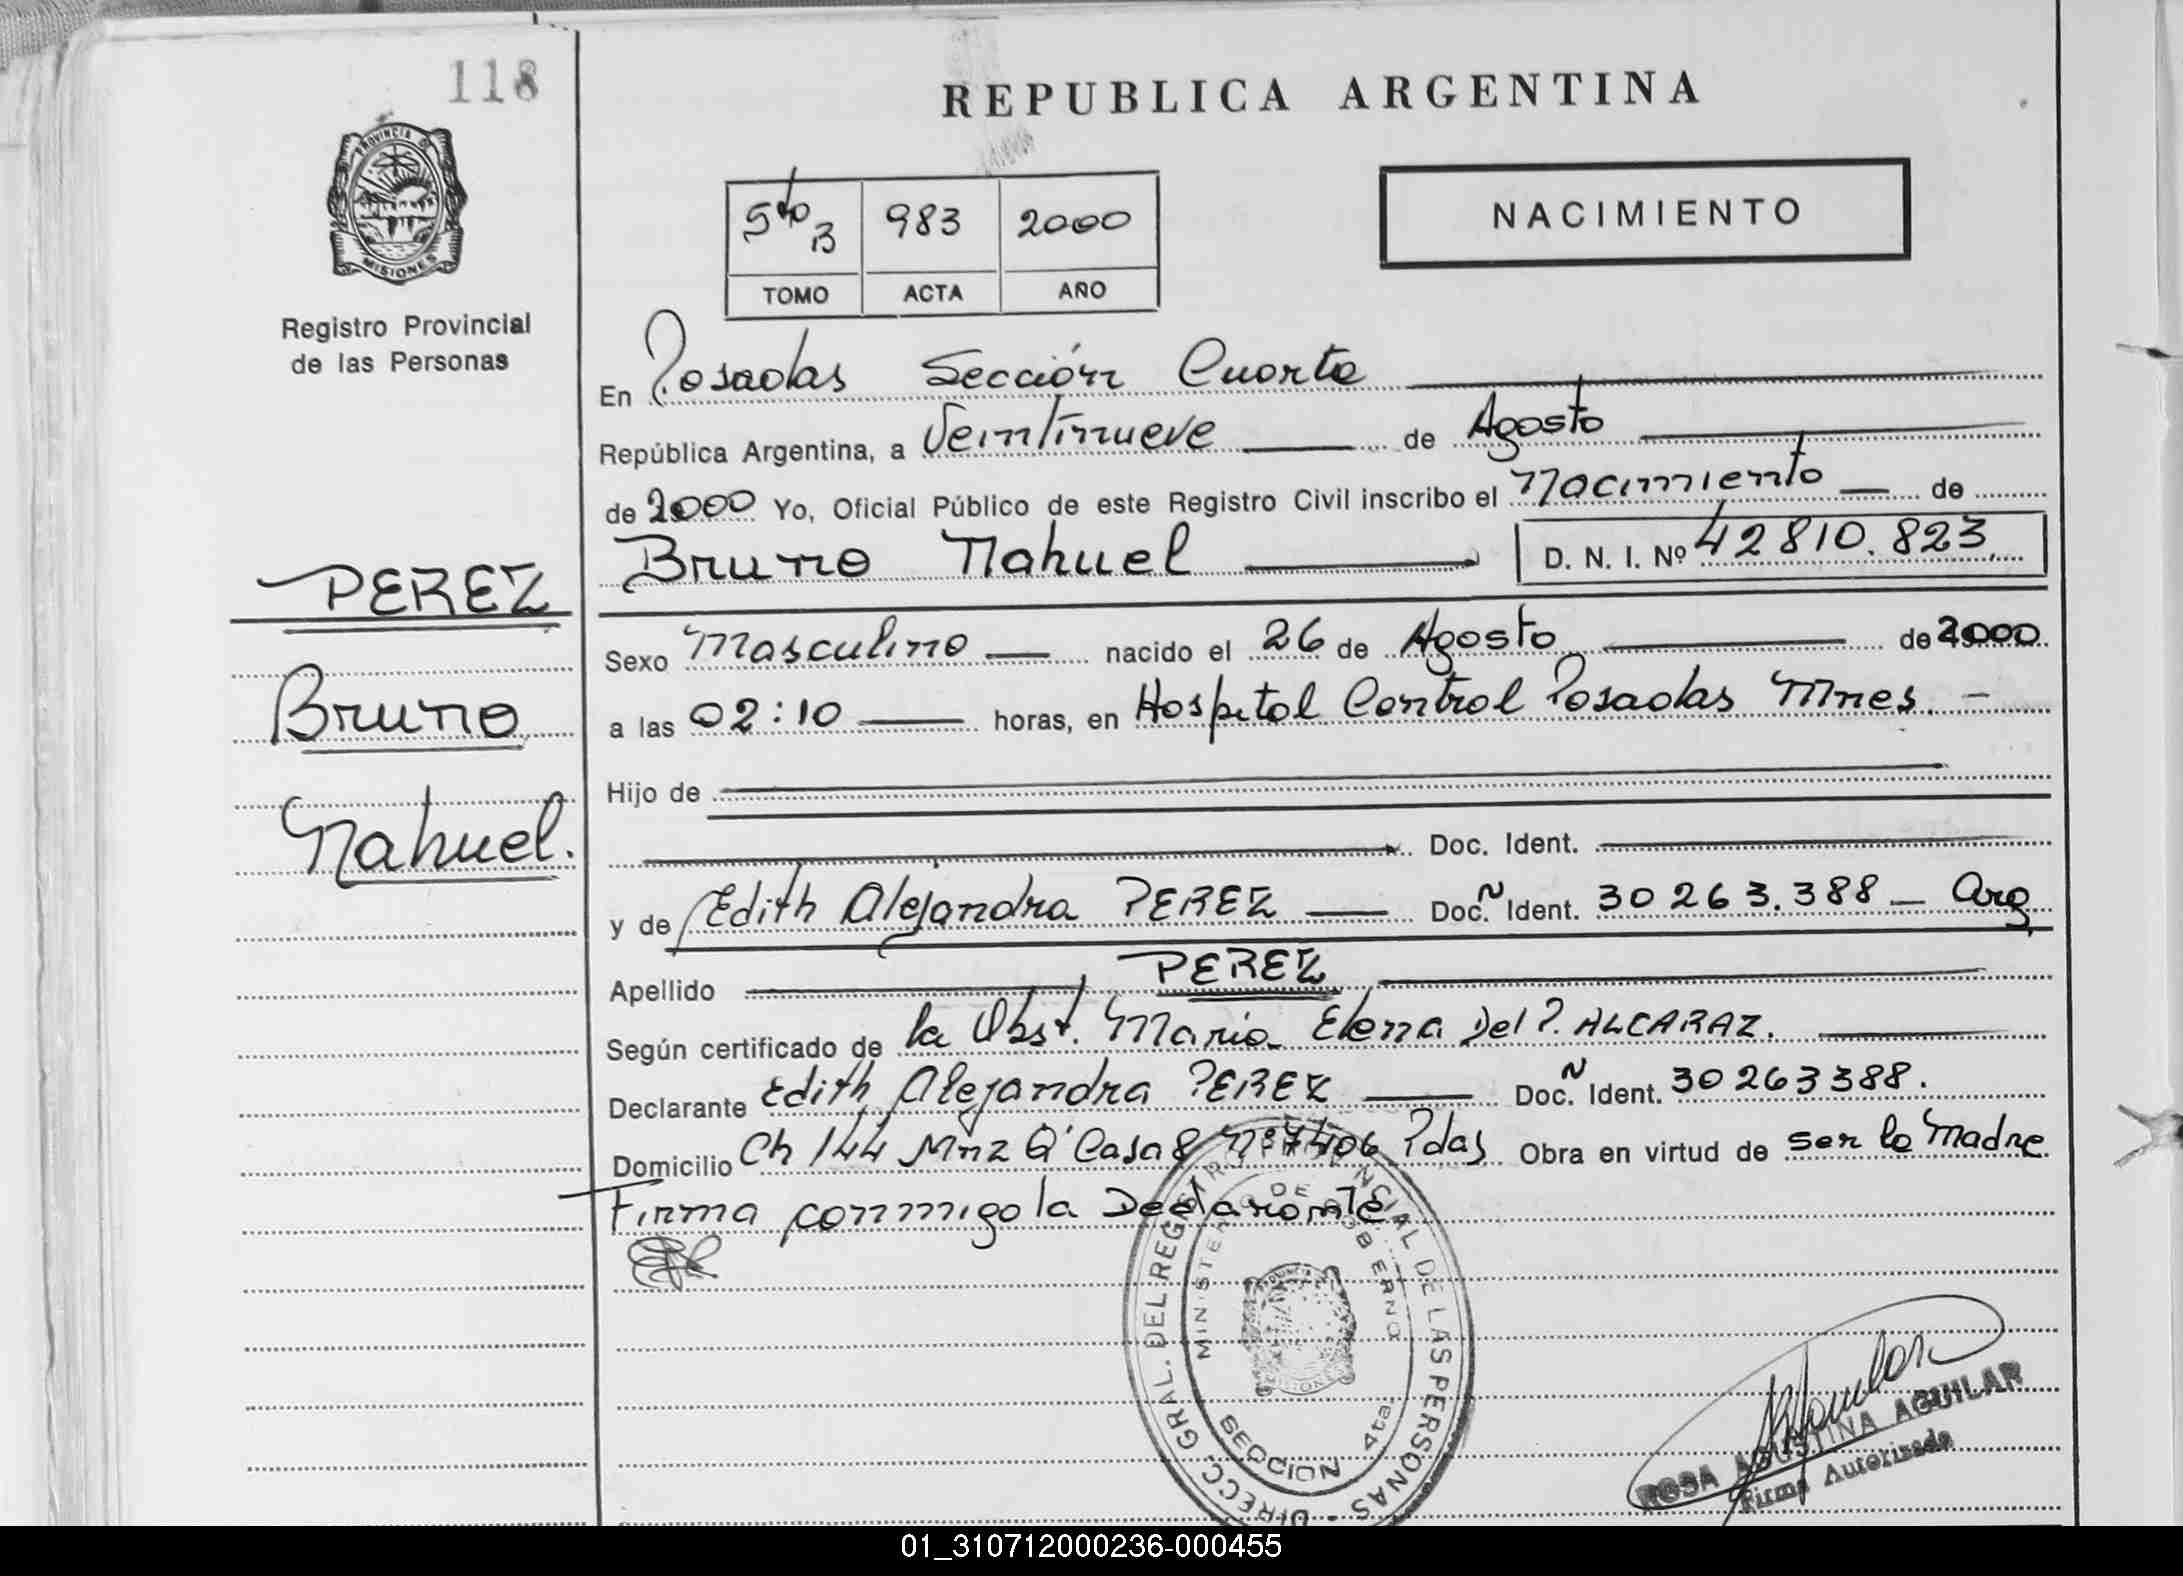 118
REPUBLICA ARGENTINA
PROVINCIA DE
MISIONES
Registro Provincial
de las Personas
5to B 983 2000
TOMO ACTA AÑO
NACIMIENTO
En Posadas Sección Cuarta
República Argentina, a Veintinueve de Agosto
de 2000 Yo, Oficial Público de este Registro Civil inscribo el Nacimiento de
Bruno Nahuel D. N. I. Nº 42810.823
PEREZ
Bruno
Nahuel.
Sexo Masculino nacido el 26 de Agosto de 2000
a las 02:10 horas, en Hospital Central Posadas Mnes.
Hijo de
Doc. Ident.
y de Edith Alejandra PEREZ Doc. Ident. 30 263.388 - Arg
Apellido PEREZ
Según certificado de la Obst. Maria Elena Del P. ALCARAZ.
Declarante Edith Alejandra PEREZ Doc. Ident. 30263388.
Domicilio Ch 144 Mnz Q' Casa 8 Nº 7406 Pdas Obra en virtud de ser la Madre
Firma conmigo la Declarante
DIRECC. GRAL. DEL REGISTRO PROVINCIAL DE LAS PERSONAS
MINISTERIO DE GOBIERNO
SECCION 4ta.
ROSA AGUSTINA AGUILAR
Firma Autorizada
01_310712000236-000455